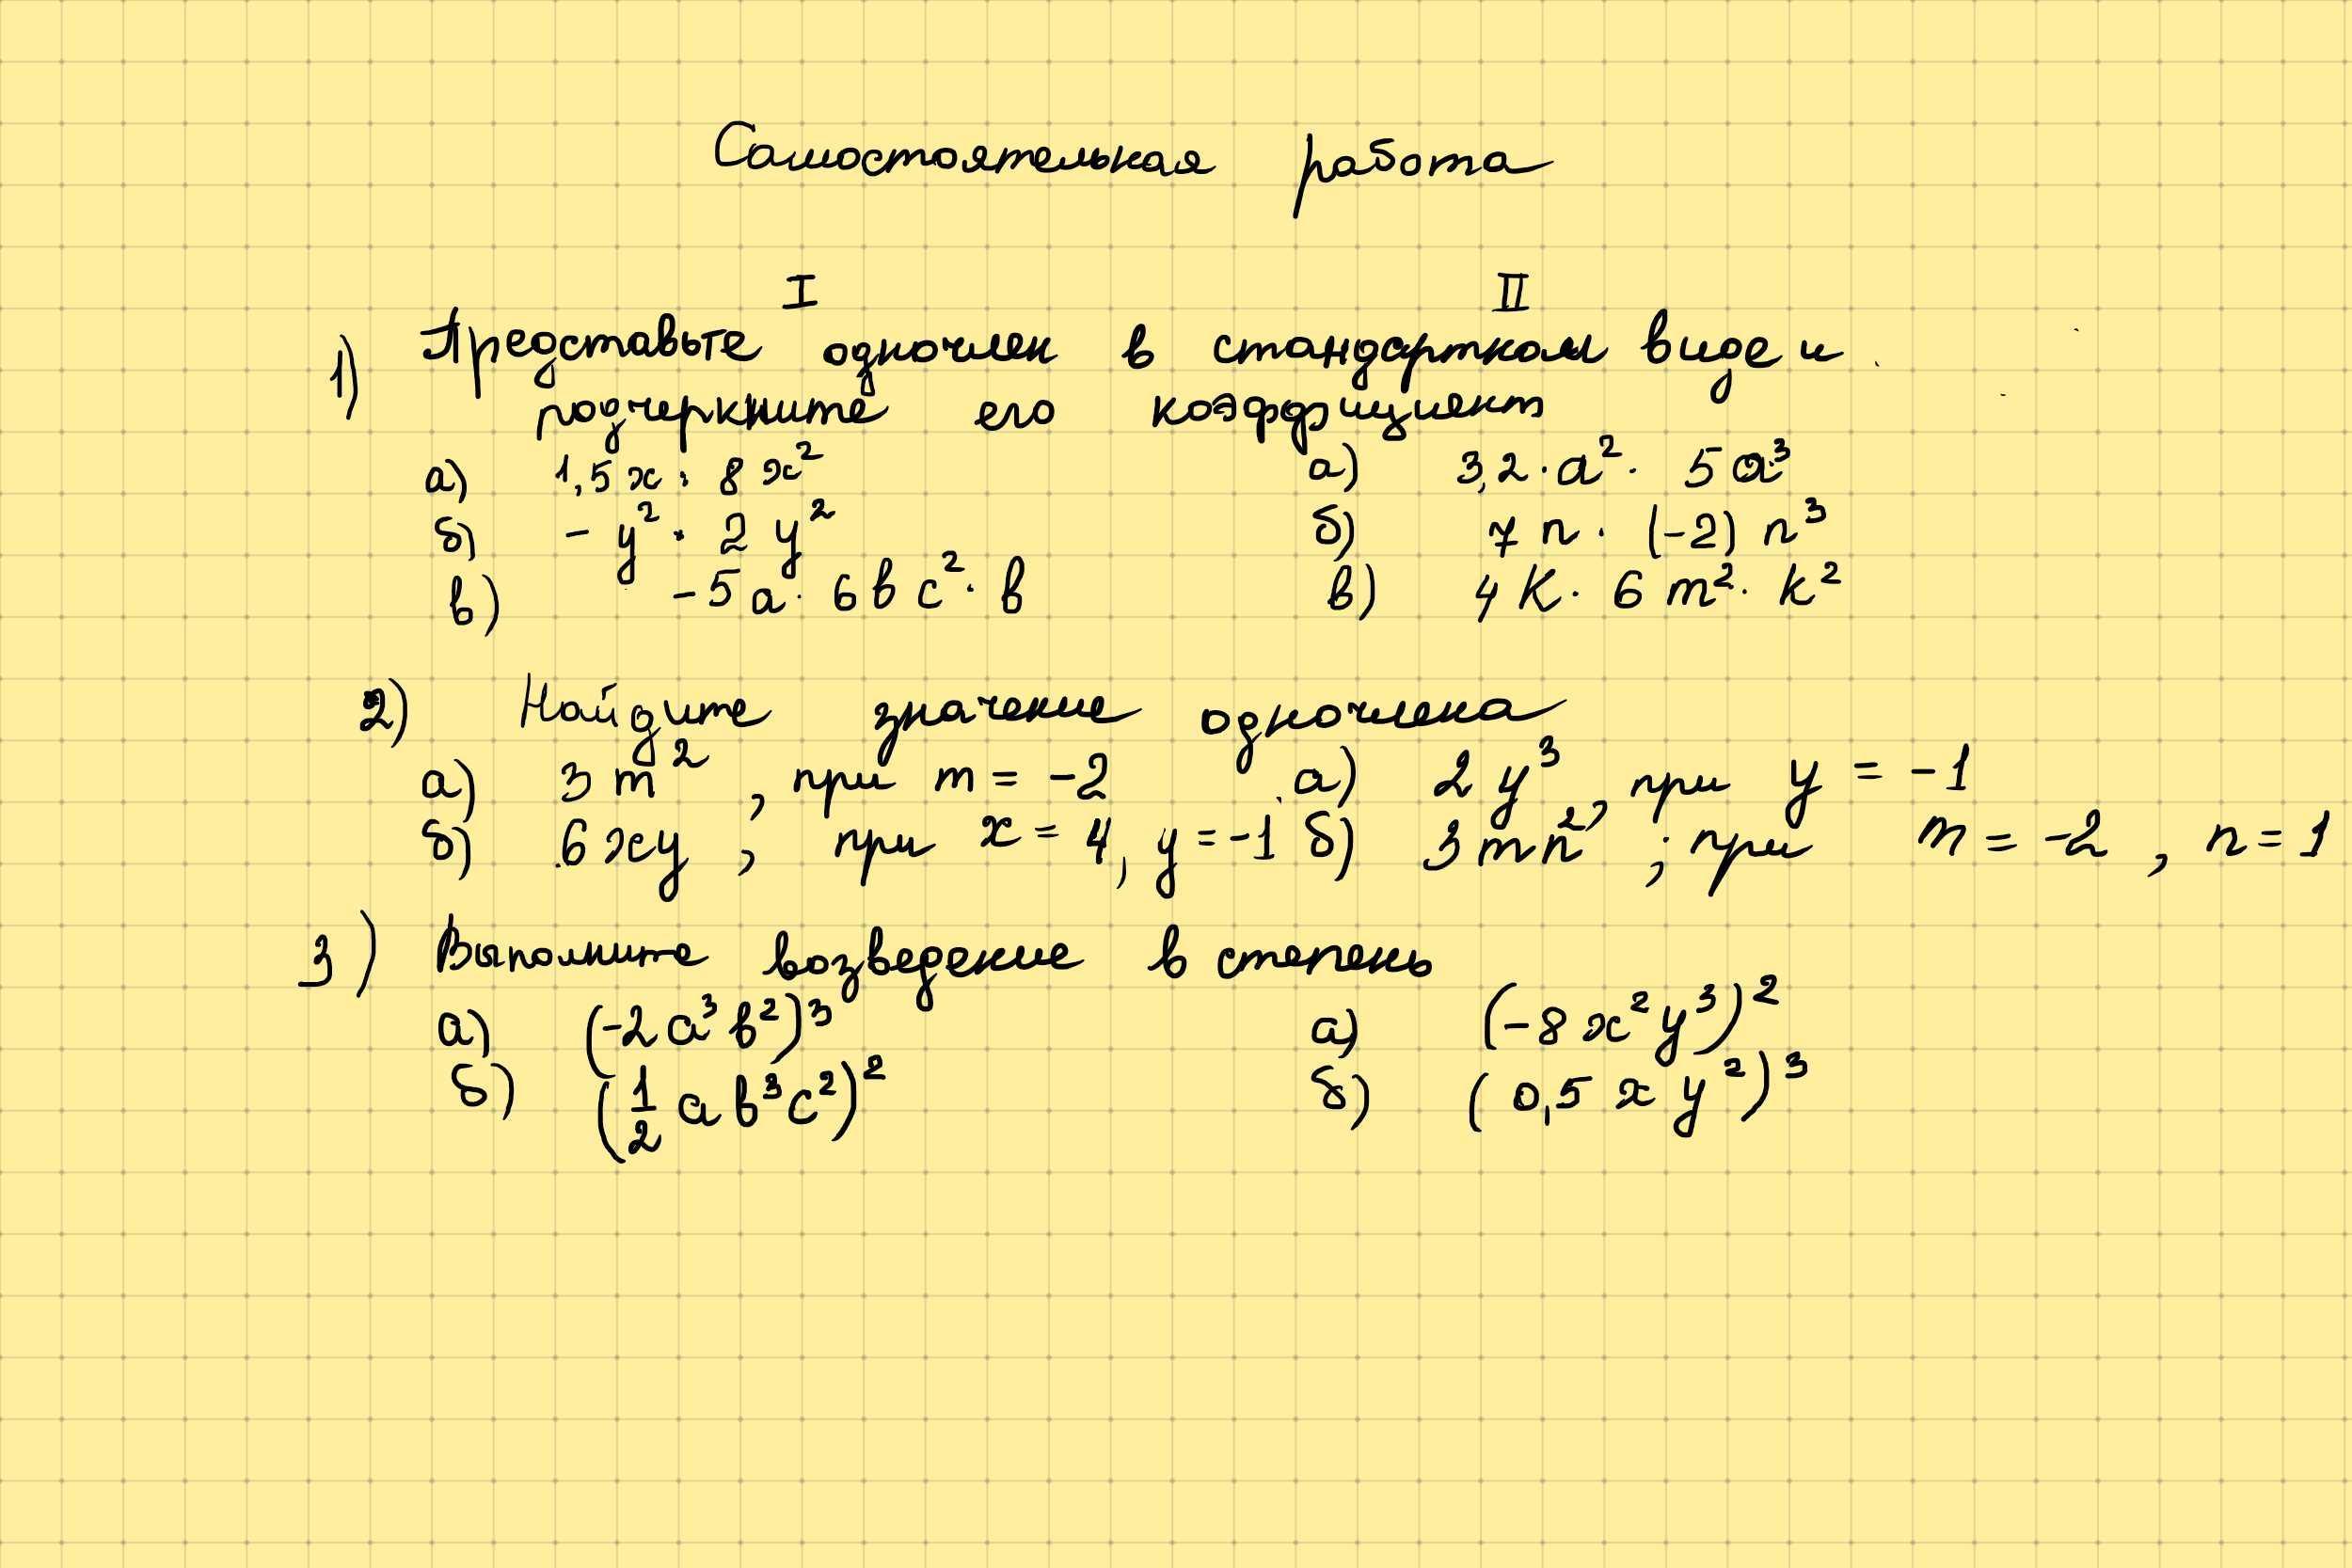 Самостоятельная работа
I II
1) Представьте одночлен в стандартном виде и
подчеркните его коэффициент
а) 1,5x · 8x² а) 3,2 · a² · 5a³
б) - y² · 2y² б) 7n · (-2) n³
в) -5a · 6bc² · b в) 4k · 6m² · k²
2) Найдите значение одночлена
а) 3m², при m = -2 а) 2y³, при y = -1
б) 6xy, при x = 4, y = -1 б) 3mn²; при m = -2, n = 1
3) Выполните возведение в степень
а) (-2a³b²)³ а) (-8x²y³)²
б) (1/2 ab³c²)² б) (0,5xy²)³